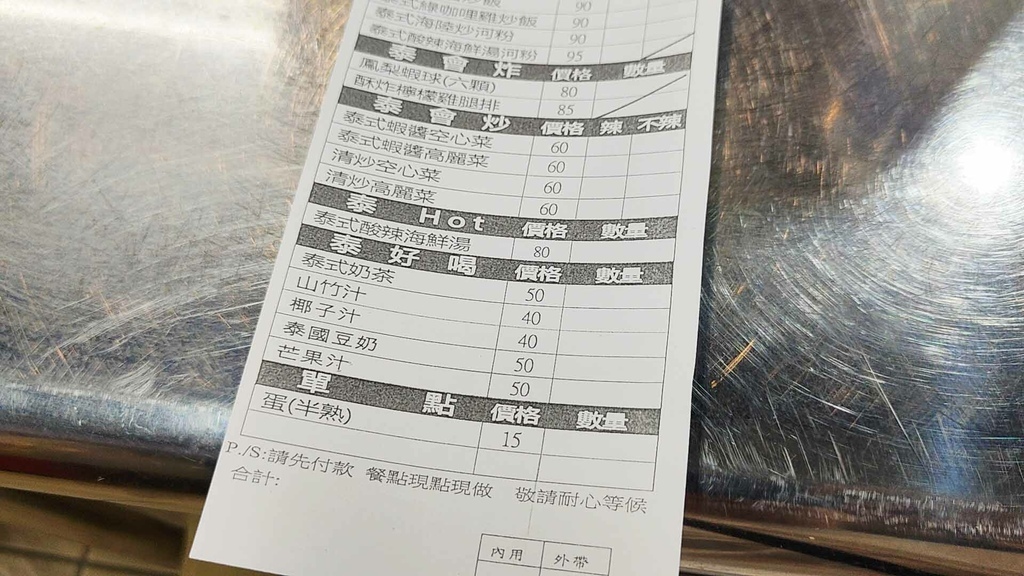 炒飯 90
泰式綠咖哩雞炒飯 90
泰式海陸炒河粉 90
泰式酸辣海鮮湯河粉 95
泰會炸 價格 數量
鳳梨蝦球(六顆) 80
酥炸檸檬雞腿排 85
泰會炒 價格 辣 不辣
泰式蝦醬空心菜 60
泰式蝦醬高麗菜 60
清炒空心菜 60
清炒高麗菜 60
泰 Hot 價格 數量
泰式酸辣海鮮湯 80
泰好喝 價格 數量
泰式奶茶 50
山竹汁 40
椰子汁 40
泰國豆奶 50
芒果汁 50
單點 價格 數量
蛋(半熟) 15
P./S:請先付款 餐點現點現做 敬請耐心等候
合計:
內用 外帶